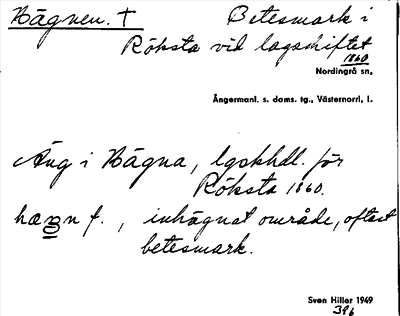 Hägnen. † Betesmark i
Röksta vid lagaskiftet
1860
Nordingrå sn,
Ångermanl. s. doms. tg., Västernorrl. l.
Äng i Hägna, lgskhdl. för
Röksta 1860.
hägn f., inhägnat område, oftast
betesmark.
Sven Hiller 1949
396